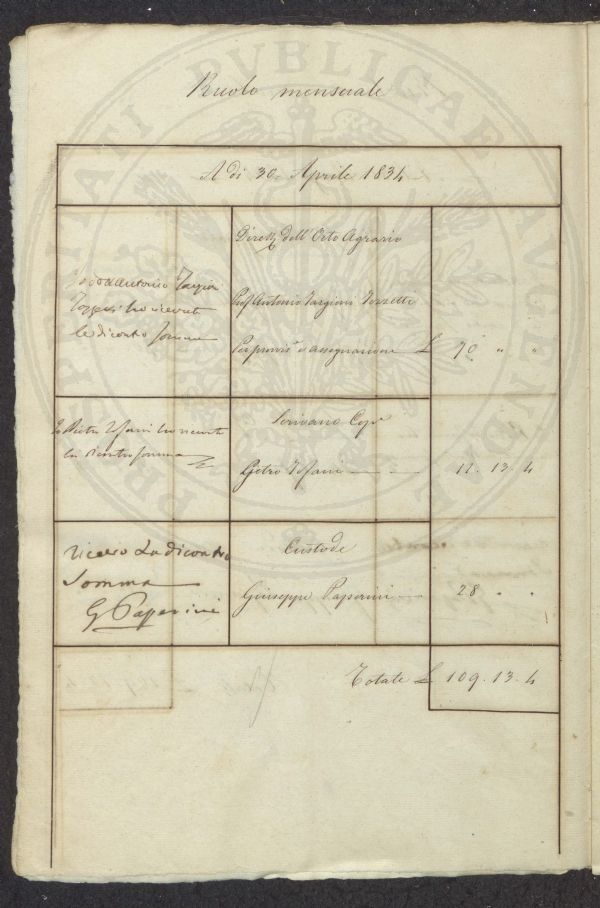 Ruolo mensuale
A dì 30. Aprile 1834
Dirett dell'Orto Agrario
Io Antonio Targioni
Tozzetti ho ricevuto
la di contro somma
Prof Antonio Targioni Tozzetti
Per provis e assegnazione £ 70 " "
Io Pietro Tofani ho ricevuto
la di contro somma
Scrivano Cop
Pietro Tofani 11. 13. 4
Ricevo La di contro
Somma
G Paperini
Custode
Giuseppe Paperini 28 " "
Totale £ 109. 13. 4